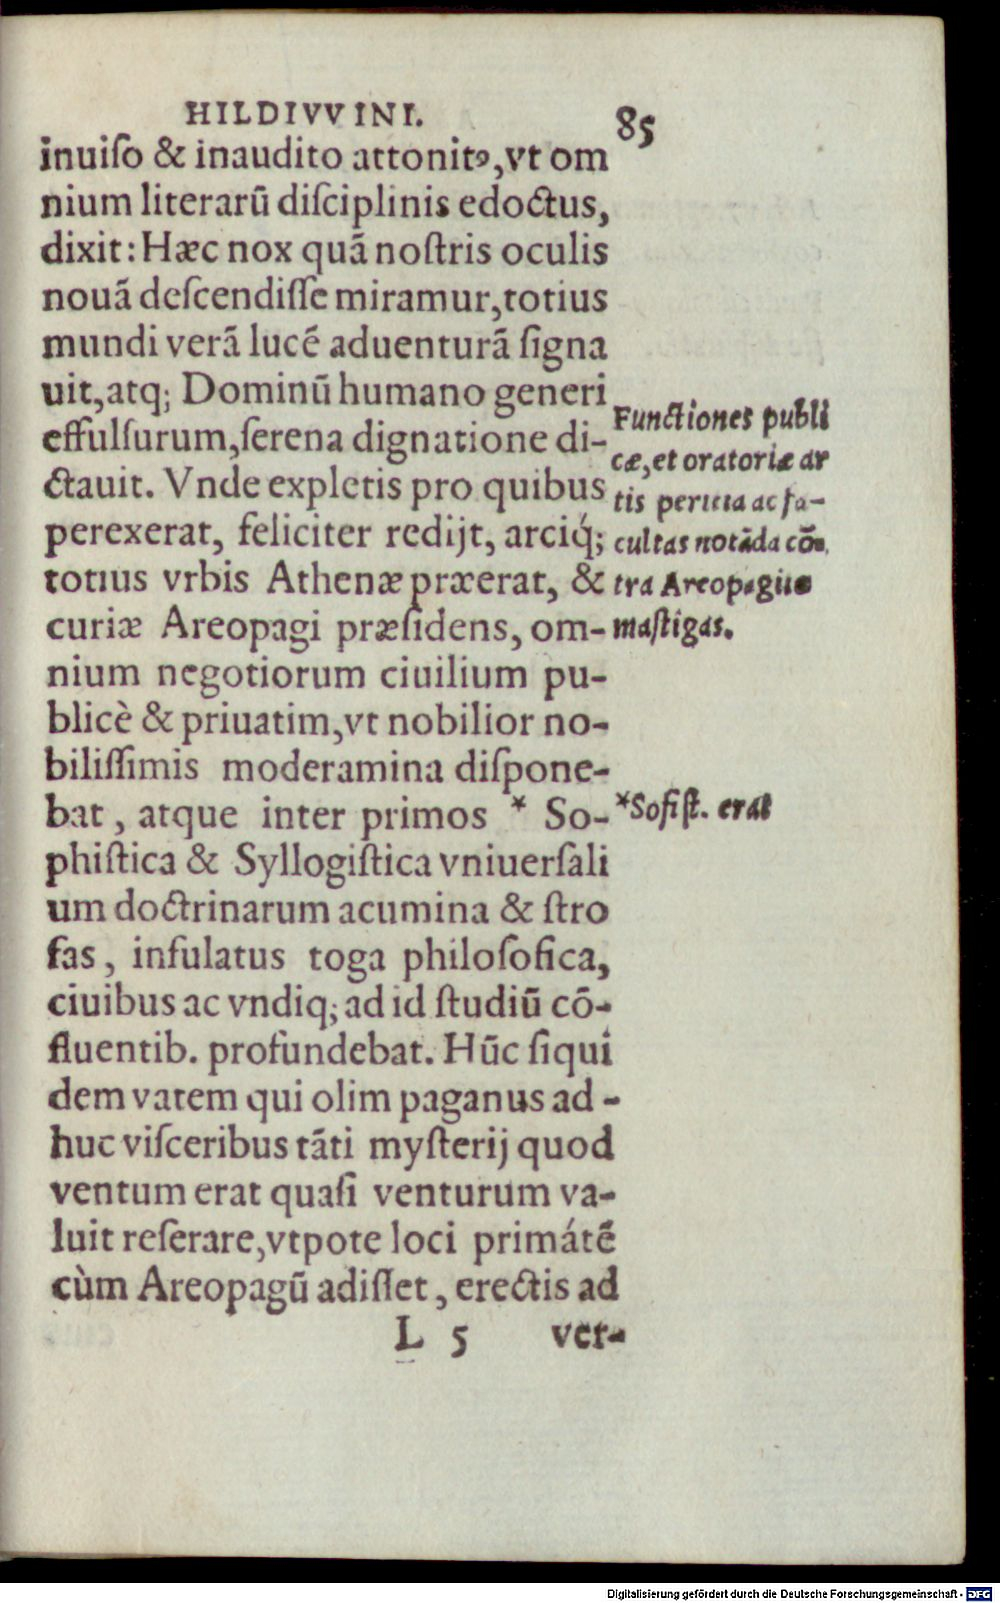 HILDIVVINI. 85
inuiſo & inaudito attonitꝰ,vt om
nium literarũ diſciplinis edoctus,
dixit: Hæc nox quã noſtris oculis
nouã deſcendiſſe miramur,totius
mundi verã lucẽ aduenturã ſigna
uit,atq; Dominũ humano generi
effulſurum,ſerena dignatione di-
ctauit. Vnde expletis pro quibus
perexerat, feliciter redijt, arciq́;
totius vrbis Athenæ præerat, &
curiæ Areopagi præſidens, om-
nium negotiorum ciuilium pu-
blicè & priuatim,vt nobilior no-
biliſſimis moderamina diſpone-
bat, atque inter primos * So-
phiſtica & Syllogiſtica vniuerſali
um doctrinarum acumina & ſtro
fas, infulatus toga philoſofica,
ciuibus ac vndiq; ad id ſtudiũ cõ-
fluentib. profundebat. Hũc ſiqui
dem vatem qui olim paganus ad-
huc viſceribus tãti myſterij quod
ventum erat quaſi venturum va-
luit reſerare,vtpote loci primátẽ
cùm Areopagũ adiſſet, erectis ad
L 5 ver-
Functiones publi
cæ,et oratoriæ ar
tis peritia ac fa-
cultas notãda cõ
tra Areopagito
maſtigas.
*Sofiſt. erat
Digitalisierung gefördert durch die Deutsche Forschungsgemeinschaft - DFG